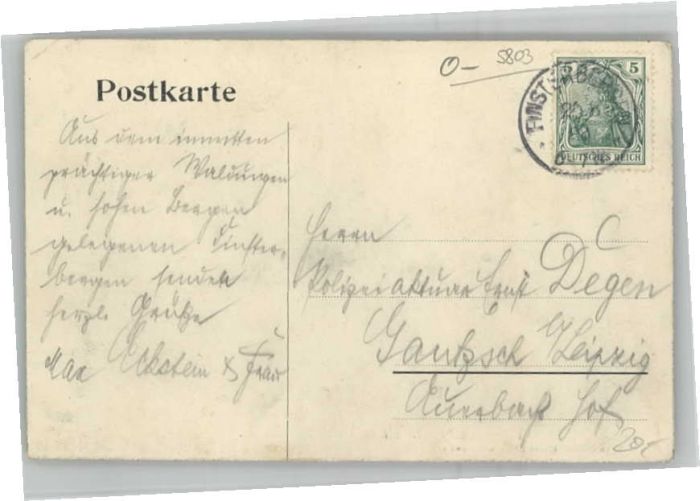 Postkarte
O- 5803
FINSTERBERGEN
5
DEUTSCHES REICH
Aus dem inmitten
prächtiger Waldungen
u. hohen Bergen
gelegenen Finster-
bergen senden
herzl. Grüße
Max Eckstein & Frau
Herrn
Polizeiaktuar Ernst Degen
Gautzsch b/Leipzig
Auerbachs Hof
20,-